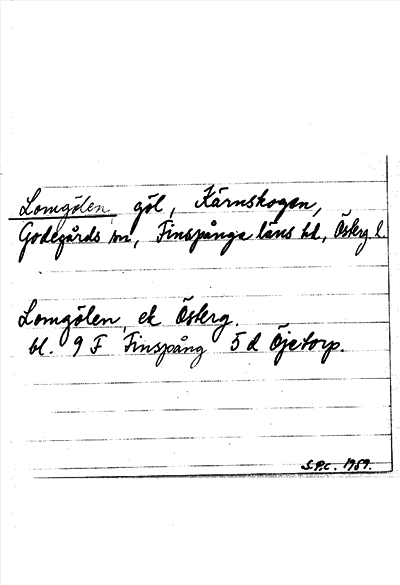 Lomgölen, göl, Kärnskogen,
Godegårds sn, Finspånga läns hd, Österg l.
Lomgölen, ek Österg.
bl. 9 F Finspång 5 d Öjetorp.
S.P.C. 1959.